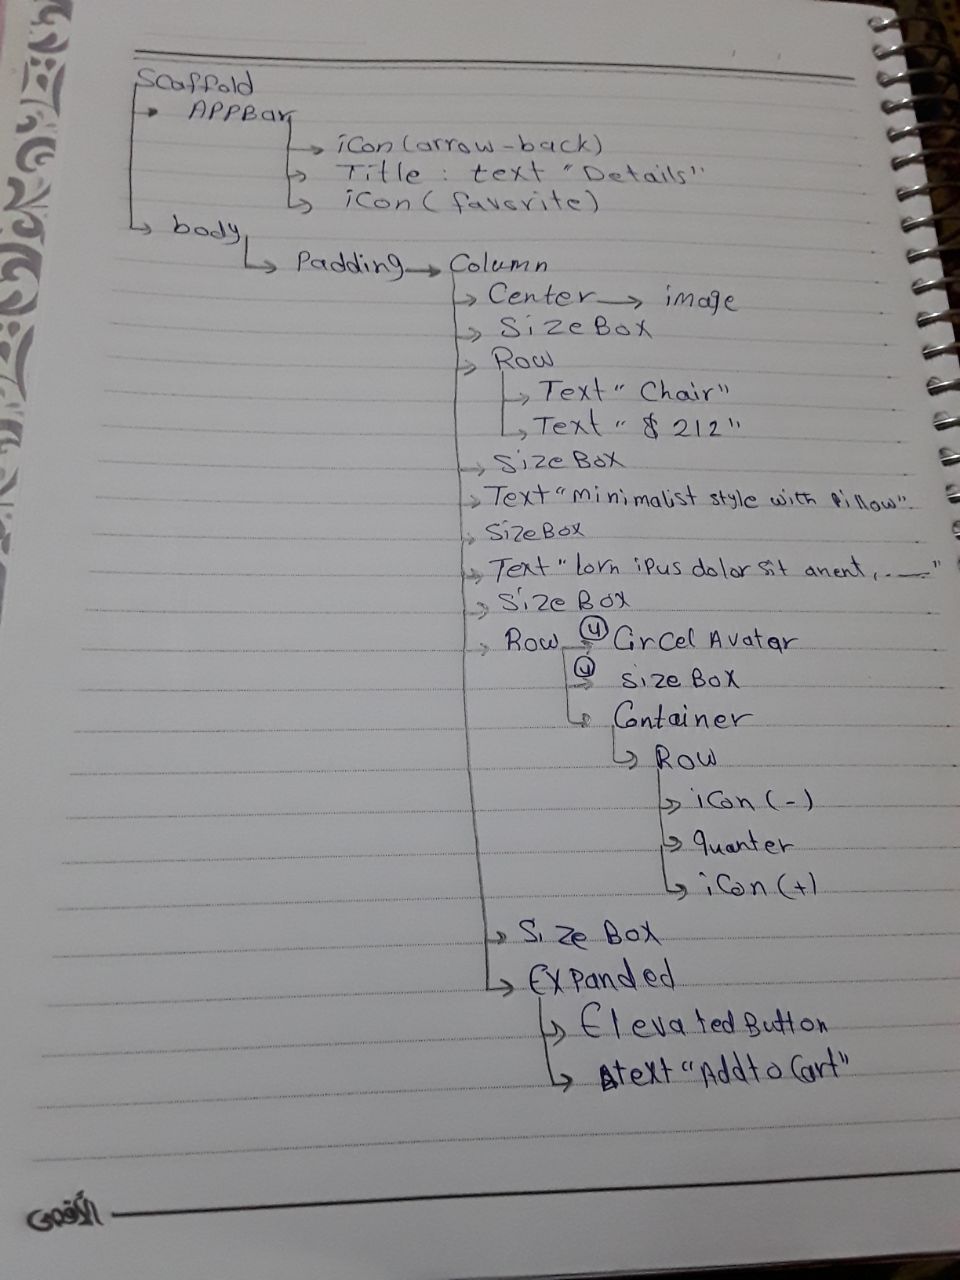 Scaffold
APPBar
icon (arrow-back)
Title : text "Details"
icon ( favorite )
body
Padding → Column
Center → image
Size Box
Row
Text " Chair"
Text " $ 212"
Size Box
Text "minimalist style with Pillow".
Size Box
Text " lorn ipus dolor sit anent, .—"
Size Box
Row 4 Circel Avatar
4 Size Box
Container
Row
icon (-)
quanter
icon (+)
Size Box
Expanded
Elevated Button
text "Add to Cart"
الأقصى